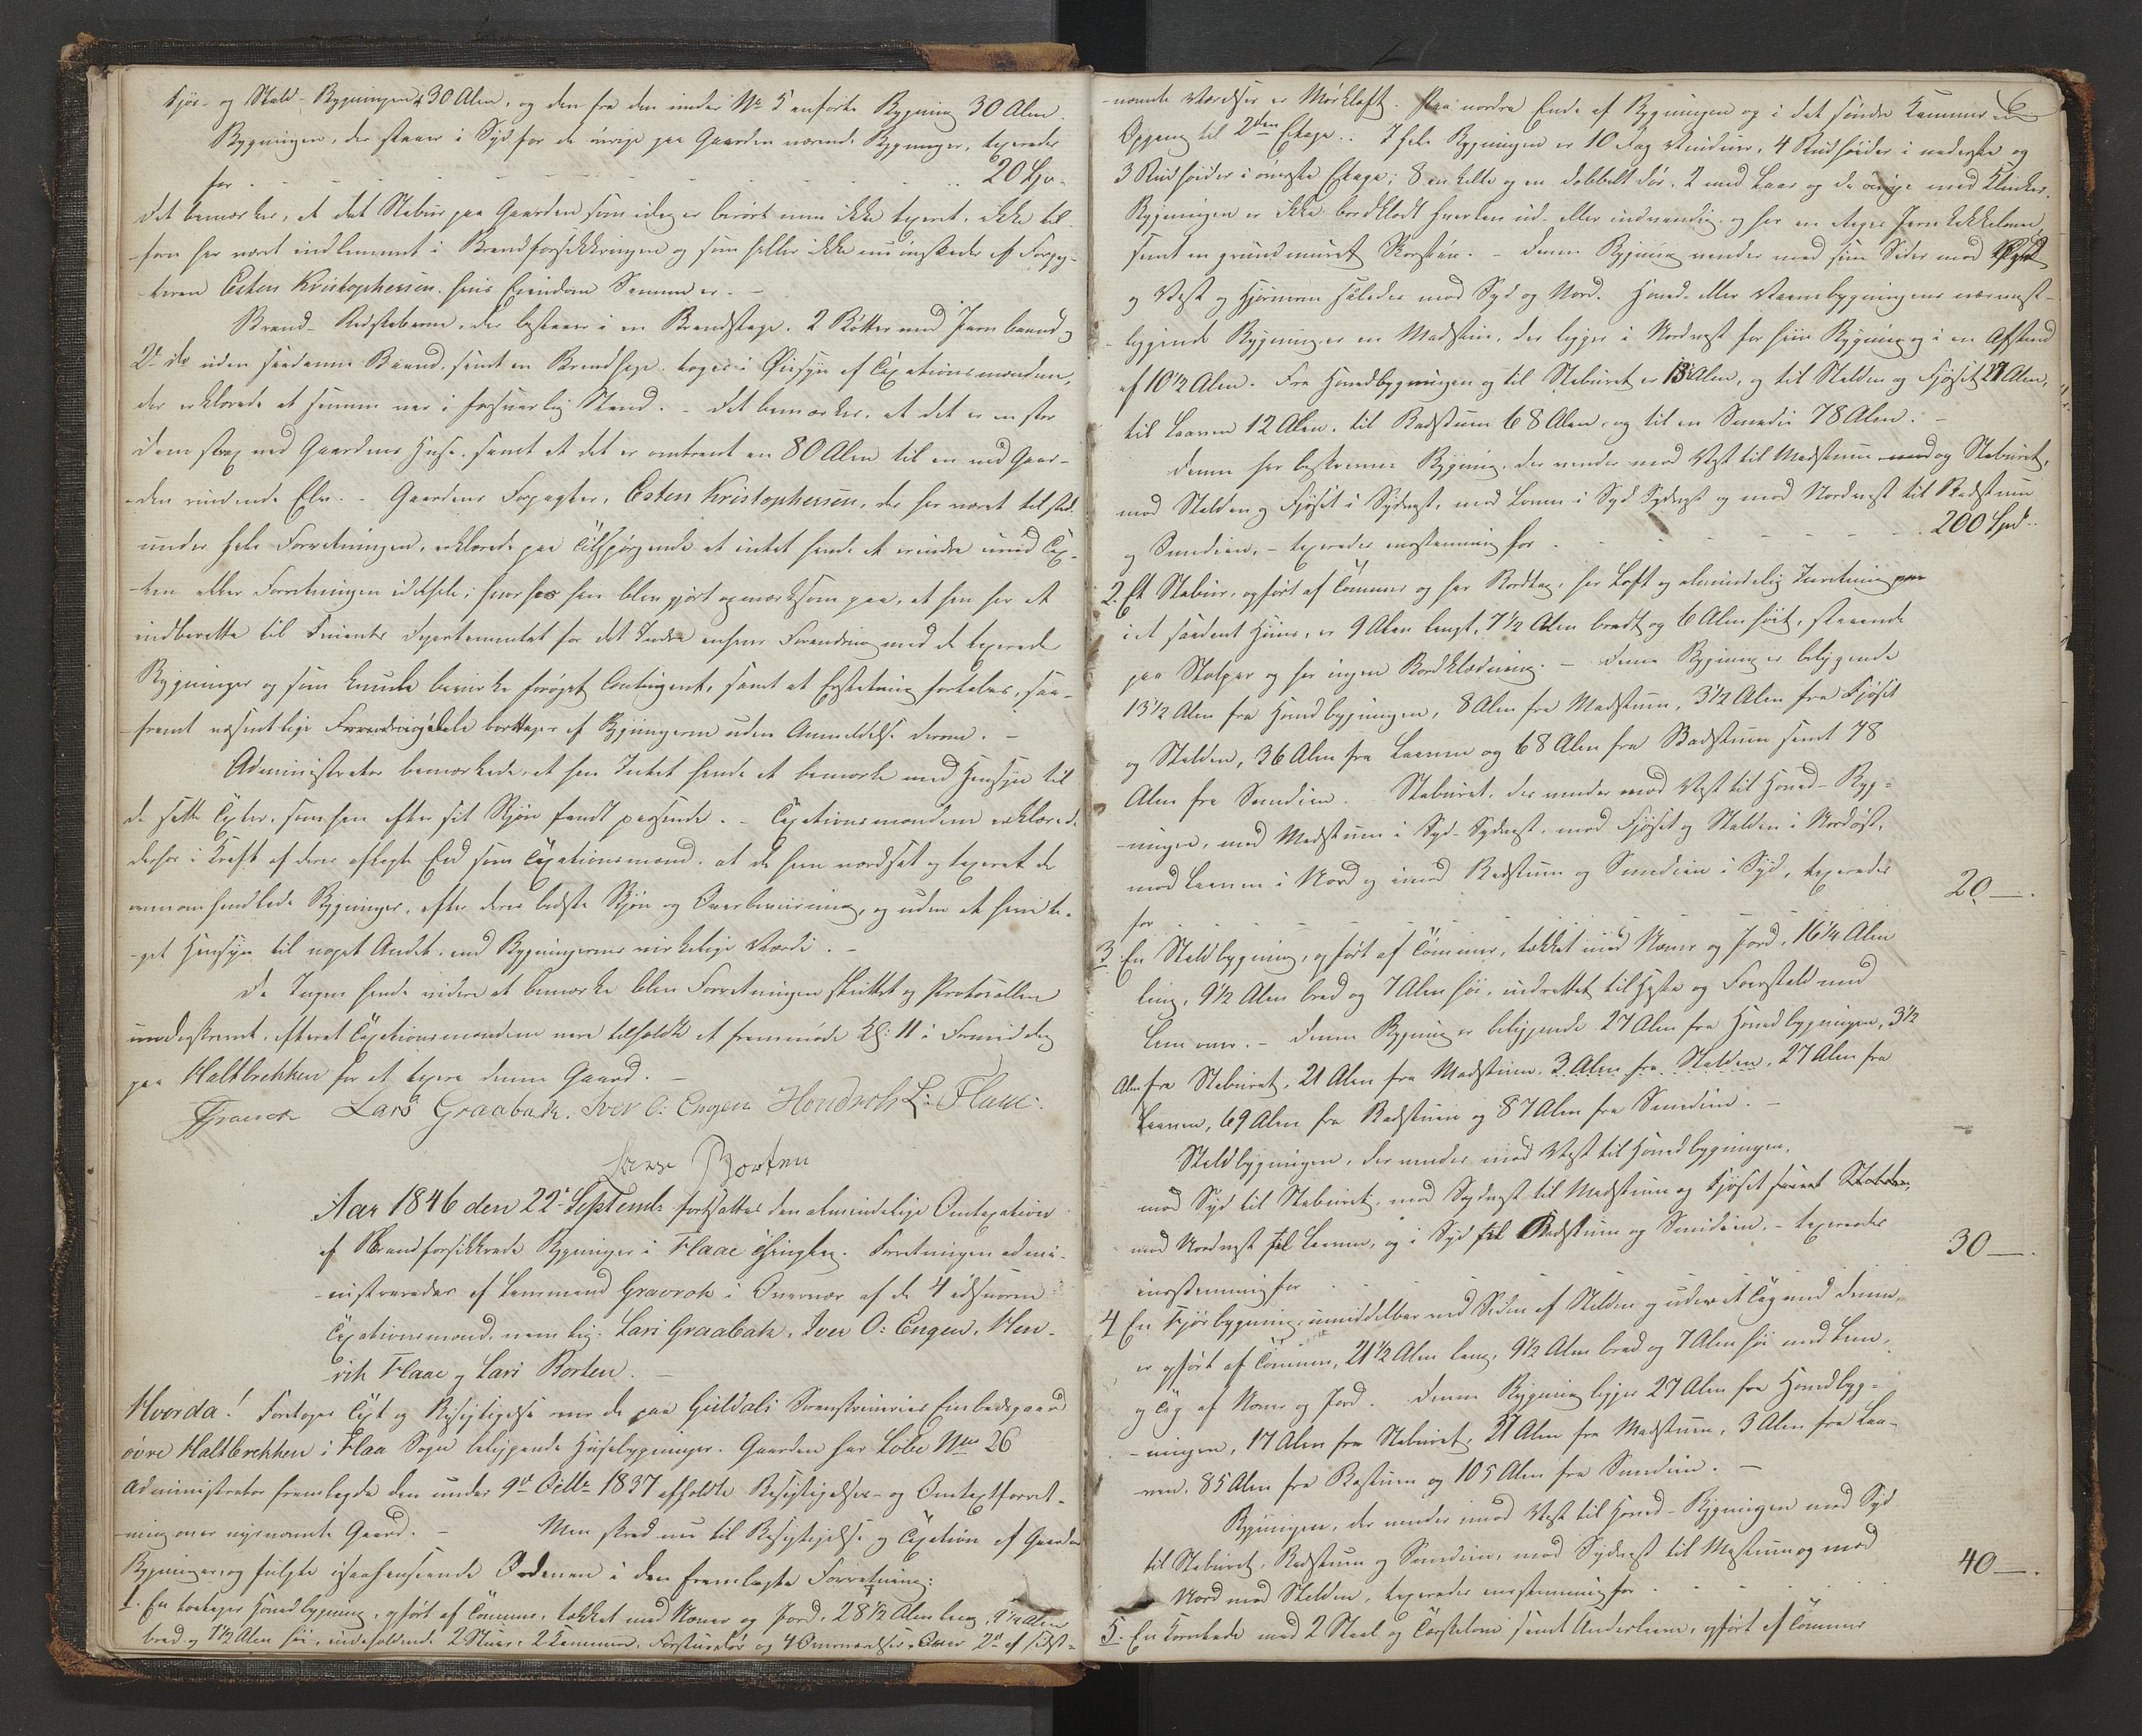 Fjøs- og Stald-Bygningen 30 Alen, og den fra den under No 5 anførte Bygning 30 Alen.
Bygningen, der staaer i Syd for de øvrige paa Gaarden værende Bygninger, taxeredes
for . . . 20 Spd.
Det bemærkes, at det Stabur paa Gaarden som idag er berørt men ikke taxeret, ikke til-
forn har været indlemmet i Brandforsikkringen og som heller ikke nu ønskedes af Forpag-
teren Esten Kristophersen hvis Eiendom Samme er. –
Brand-Redskaberne, der bestaaer i en Brandstige, 2 Bøtter med Jern baand og
2de do uden saadanne Baand, samt en Brandhage, toges i Øiesyn af Taxationsmændene,
der erklærede at samme var i forsvarlig Stand. – Det bemærkes, at det er en stor
Dam strax ved Gaardens Huse, samt at det er omtrent en 80 Alen til en ved Gaar-
den rindende Elv. – Gaardens Forpagter, Esten Kristophersen, der har været tilsted
under hele Forretningen, erklærede paa Tilspørgende at intet havde at erindre imod Tax-
ten eller Forretningen idethele; hvorhos han blev gjort opmærksom paa, at han har at
indberette til Finants Departementet for det Indre enhver Forandring med de taxerede
Bygninger og som kunde bevirke forøget Contingent, samt at Erstatning fortabes, saa-
fremt væsentlige Brandriigdele borttages af Bygningerne uden Anmeldelse derom. –
Administrator bemærkede, at han Intet havde at bemærke med Hensyn til
de satte Taxter, som han efter sit Skjøn fandt passende. – Taxationsmændene erklærede
derhos i Kraft af deres aflagte Eed som Taxationsmænd, at de have vurdert og taxeret de
ovenomhandlede Bygninger, efter deres bedste Skjøn og Overbeviisning, og uden at have ta-
get Hensyn til noget Andet end Bygningernes virkelige Værdi. –
Da Ingen havde videre at bemærke blev Forretningen sluttet og Protocollen
underskrevet, efterat Taxationsmændene vare tilholdte at fremmøde Kl: 11 i Formiddag
paa Haltbrekken for at taxere denne Gaard. –
Gravrok Lars Graabak. Iver O: Engen Hendrik L: Flaae.
Lars Borten
Aar 1846 den 22de Septembr fortsattes den almindelige Omtaxation
af Brandforsikkrede Bygninger i Flaae Thinglag. Forretningen admi-
nistreredes af Lensmand Gravrok i Overvær af de 4 edsvorne
Taxationsmænd, nemlig: Lars Graabak, Iver O: Engen, Hen-
rik Flaae og Lars Borten. –
Hvorda! Foretoges Taxt og Besigtigelse over de paa Guldals Sorenskriveries Embedsgaard
övre Haltbrekken i Flaa Sogn beliggende Huusebygninger. Gaarden har Løbe No 26
Administrator fremlagde den under 9de Octbr 1837 afholdte Besigtigelses- og Omtaxtforret-
ning over nysnævnte Gaard. – Man skred nu til Besigtigelse og Taxation af Gaardens
Bygninger, og fulgte isaahenseende Ordenen i den fremlagte Forretning:
1. En toetages Hovedbygning, opført af Tømmer, tækket med Næver og Jord, 28 1/2 Alen lang, 9 1/2 Alen
bred og 7 1/2 Alen høi, indeholdende 2 Stuer, 2 Kammere, Forstudør og 4 Overværelser. Over 2de af sidst-
6
nævnte Værelser er Mørkloft. Paa nordre Ende af Bygningen og i det søndre Kammer er
Opgang til 2den Etage. I hele Bygningen er 10 Fag Vinduer, 4 Rudhøider i nederste og
3 Rudhøider i øverste Etage; 8 enkelte og en dobbelt Dør, 2 med Laas og de øvrige med Klinker.
Bygningen er ikke bordklædt hverken ud- eller indvendig, og har en Etages Jernkakkelovn
samt en grundmuret Skorsteen. – Denne Bygning vender med sine Sider mod Øst
og Vest og Hjørnene saaledes mod Syd og Nord. Hoved- eller Vaanebygningens nærmest-
liggende Bygninger er Madstuen, der ligger i Nordvest for hiin Bygning og i en Afstand
af 10 1/2 Alen. Fra Hovedbygningen og til Staburet er 13 1/2 Alen, og til Stalden og Fjøset 27 Alen,
til Laaven 12 Alen, til Badstuen 68 Alen, og til en Smedie 78 Alen. –
Denne her beskrevne Bygning, der vender mod Vest til Madstuen og Staburet,
mod Stalden og Fjøset i Sydvest, mod Laaven i Syd Sydvest og mod Nordvest til Badstuen
og Smedien, – taxeredes eenstemmig for . . . 200 Spd.
2. Et Stabur, opført af Tømmer og har Bordtag, har Loft og almindelig Indretning
i et saadant Huus, er 9 Alen langt, 7 1/2 Alen bredt og 6 Alen høit, staaende
paa Stolper og har ingen Bordklædning. – Denne Bygning er beliggende
13 1/2 Alen fra Hovedbygningen, 8 Alen fra Madstuen, 3 1/2 Alen fra Fjøset
og Stalden, 36 Alen fra Laaven og 68 Alen fra Badstuen samt 78
Alen fra Smedien. Staburet, der vender mod Vest til Hoved-Byg-
ningen, mod Madstuen i Syd-Sydvest, mod Fjøset og Stalden i Nordøst,
mod Laaven i Nord og imod Badstuen og Smedien i Syd, taxeredes
for . . . 20 –.
3. En Staldbygning, opført af Tømmer, tækket med Næver og Jord, 16 1/4 Alen
lang, 9 1/2 Alen bred og 7 Alen høi, indrettet til Heste og Faarstald med
Lem over. – Denne Bygning er beliggende 27 Alen fra Hovedbygningen, 3 1/2
Alen fra Staburet, 21 Alen fra Madstuen, 3 Alen fra Stalden, 27 Alen fra
Laaven, 69 Alen fra Badstuen og 87 Alen fra Smedien. –
Staldbygningen, der vender mod Vest til Hovedbygningen,
mod Syd til Staburet, mod Sydvest til Madstuen og Fjøset samt Stalden,
mod Nordvest til Laaven, og i Syd til Badstuen og Smedien, – taxeredes
eenstemmig for . . . 30 –.
4 En Fjøsbygning umiddelbar ved Siden af Stalden og under et Tag med denne,
er opført af Tømmer, 21 1/2 Alen lang, 9 1/2 Alen bred og 7 Alen høi med Lem,
og Tag af Næver og Jord. Denne Bygning ligger 27 Alen fra Hovedbyg-
ningen, 17 Alen fra Staburet, 21 Alen fra Madstuen, 3 Alen fra Laa-
ven, 85 Alen fra Bastuen og 105 Alen fra Smedien. –
Bygningen, der vender imod Vest til Hoved-Bygningen mod Syd
til Staburet, Badstuen og Smedien, mod Sydvest til Mastuen og mod
Nord mod Stalden, taxeredes eenstemmig for . . . 40 –.
5. En Kornlade med 2 Staal og Tærskelove samt Underlaave, opført af Tømmer